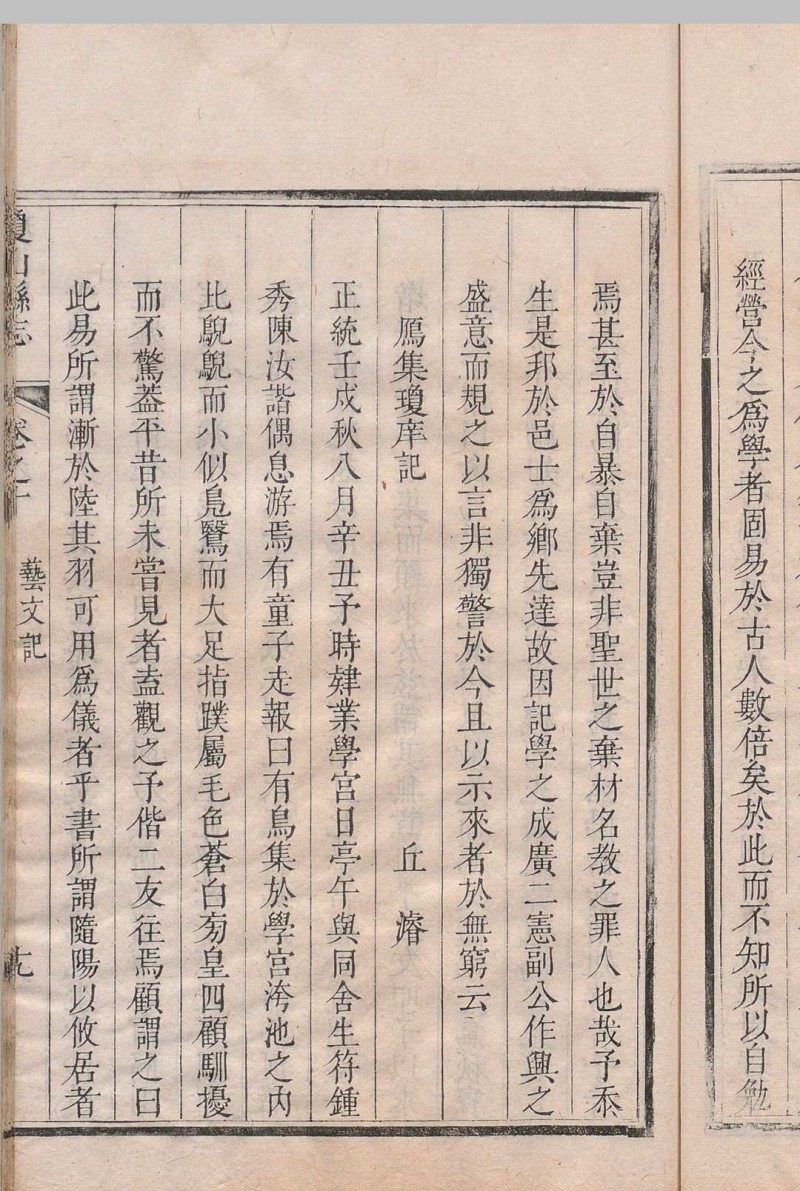 經營今之爲學者固易於古人數倍矣於此而不知所以自勉
焉甚至於自暴自棄豈非聖世之棄材名教之罪人也哉予忝
生是邦於邑士爲鄉先達故因記學之成廣二憲副公作興之
盛意而規之以言非獨警於今且以示來者於無窮云
鴈集瓊庠記 丘濬
正統壬戌秋八月辛丑予時肄業學宮日亭午與同舍生符鍾
秀陳汝諧偶息游焉有童子走報曰有鳥集於學宮泮池之內
比鶃鶃而小似鳧鷖而大足指蹼屬毛色蒼白匆皇四顧馴擾
而不驚葢平昔所未嘗見者盍觀之予偕二友往焉顧謂之曰
此易所謂漸於陸其羽可用爲儀者乎書所謂隨陽以攸居者
瓊山縣志 卷之十 藝文記 十九